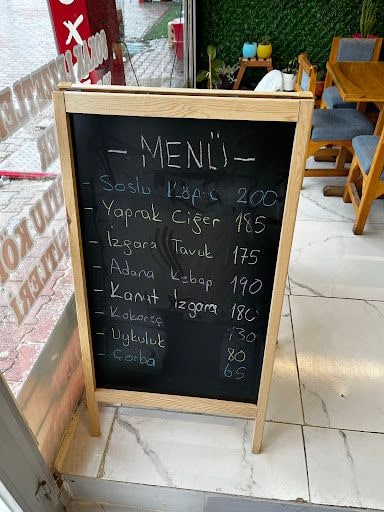 - MENÜ -
- Soslu Köfte 200
- Yaprak Ciğer 185
- Izgara Tavuk 175
- Adana Kebap 190
- Kanat Izgara 180
- Kokoreç 130
- Uykuluk 80
- Çorba 65